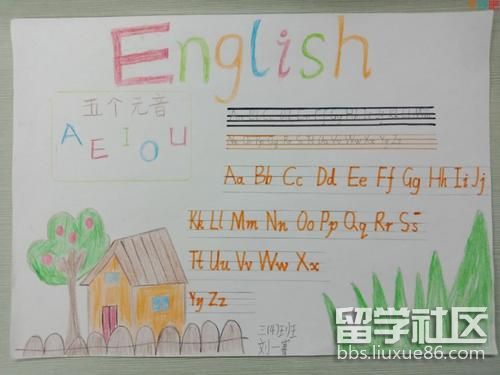 English
五个元音
A E I O U
Aa Bb Cc Dd Ee Ff Gg Hh Ii Jj
Kk Ll Mm Nn Oo Pp Qq Rr Ss
Tt Uu Vv Ww Xx
Yy Zz
三(4)班
刘一
留学社区
bbs.liuxue86.com